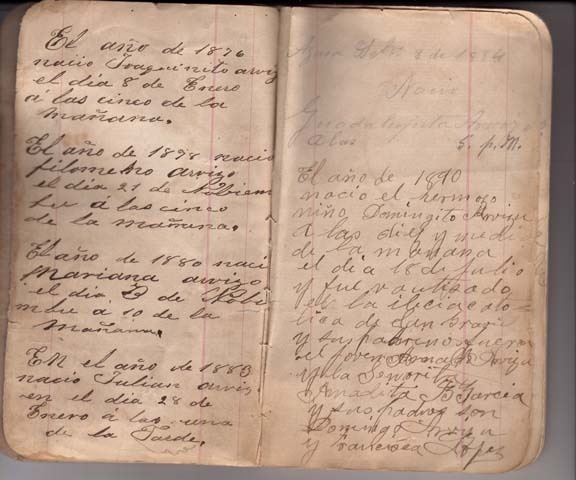 El año de 1876
nacio Joaquinito arvizo
el dia 8 de Enero
á las cinco de la
mañana.
El año de 1878 nacio
filomeno arvizo
el dia 21 de Nobiem
bre á las cinco
de la mañana.
El año de 1880 naci
Mariana arvizo
el dia de Nobi
mbre a 10 de la
Mañana.
EN el año de 1883
nacio Julian arviz
en el dia 28 de
Enero á las una
de la Tarde.
8 de 1884
Nacio
Guadalupita
alas 5. p.M.
El año de 1890
nacio el hermozo
niño Domingito Arvizu
a las dies y medi
de la mañana
el dia 18 de Julio
y fue vautisado
es la
de San
y sus padrinos fueron
el joven Arvizu
y la Señorita
Amadita B Garcia
y sus padres son
Domingo Arvizu
y francisca Lopez